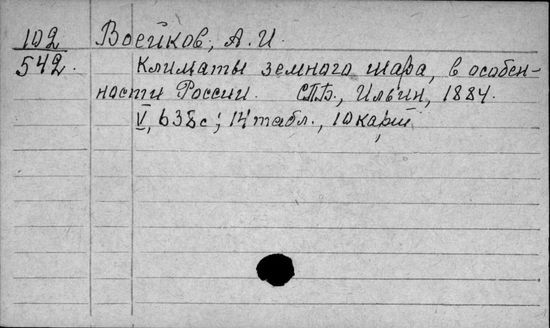 102 Воейков, А. И.
542. Климаты земного шара, в особен-
ности России. СПБ., Ильин, 1884.
V, 638с; 14 табл., 10 карт